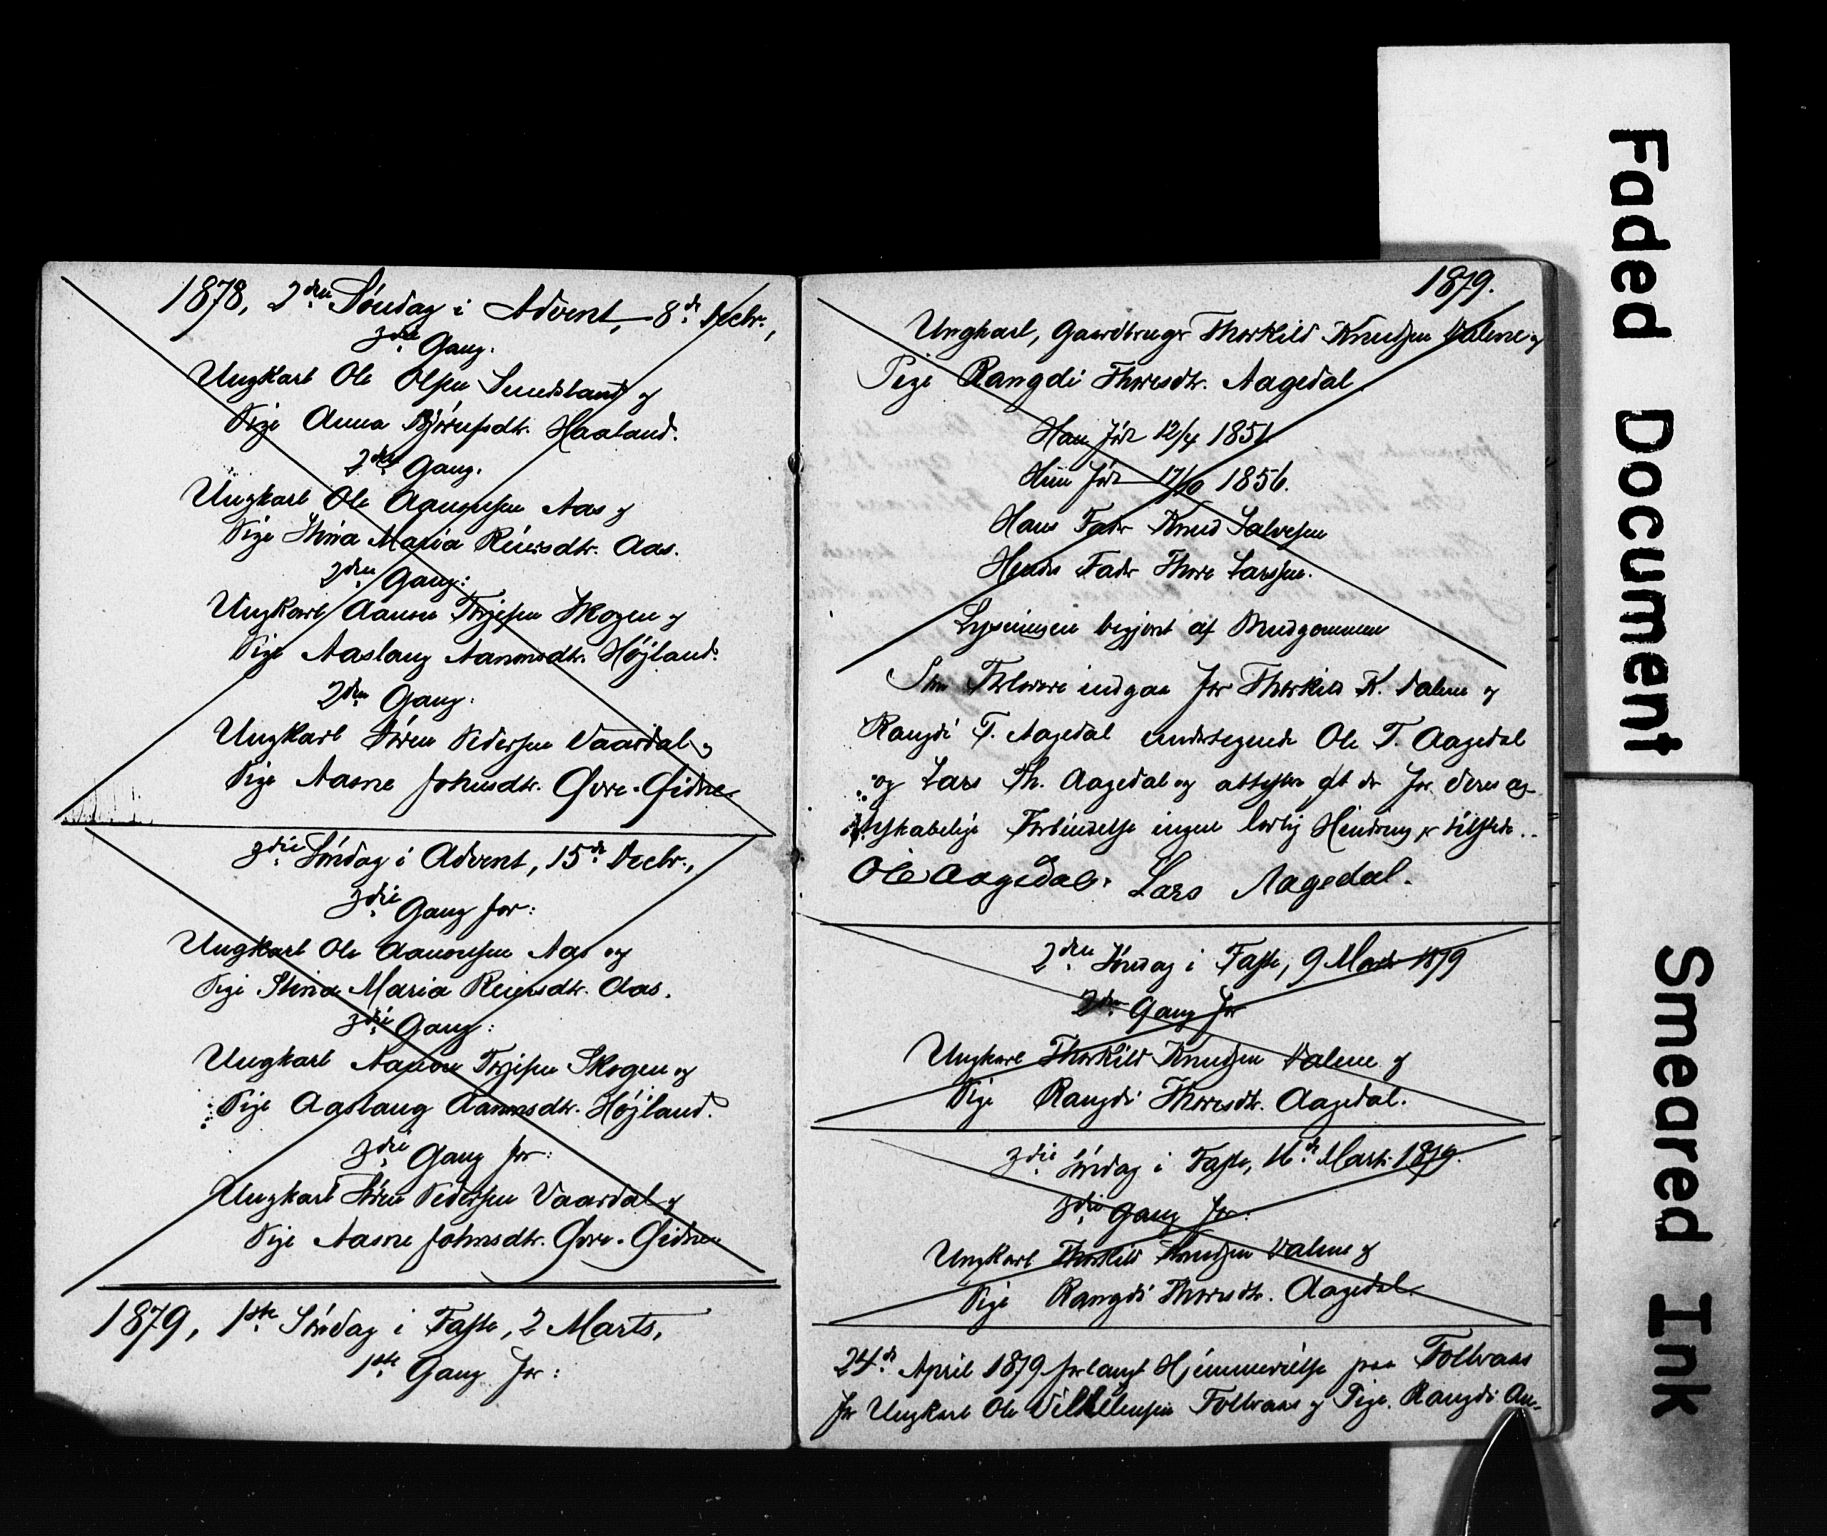 1878, 2den Søndag i Advent, 8de Decbr.,
3die Gang.
Ungkarl Ole Olsen Sundsland og
Pige Anna Bjørnsdtr. Haaland.
2den Gang.
Ungkarl Ole Aanensen Aas og
Pige Stina Maria Reiersdtr. Aas.
2den Gang:
Ungkarl Aanon Terjesen Skogen og
Pige Aaslaug Aanonsdtr. Højland.
2den Gang:
Ungkarl Søren Pedersen Vaardal og
Pige Aasne Johnsdtr. Øvre-Eidne.
3die Søndag i Advent, 15de Decbr.,
3die Gang for:
Ungkarl Ole Aanonsen Aas og
Pige Stina Maria Reiersdtr. Aas.
3die Gang:
Ungkarl Aanon Terjesen Skogen og
Pige Aaslaug Aanonsdtr. Højland.
3die Gang for:
Ungkarl Søren Pedersen Vaardal og
Pige Aasne Johnsdtr. Øvre-Eidne.
1879, 1ste Søndag i Faste, 2 Marts,
1ste Gang for:
1879.
Ungkarl, Gaardbruger Thorkild Knudsen Valene og
Pige Rangdi Thoresdtr. Aagedal.
Han født 12/4 1851
Hun født 17/10 1856.
Hans Fader Knud Salvesen
Hendes Fader Thore Larssen.
Lysningen begjært af Brudgommen
Som Forlovere indgaa for Thorkild K. Valene og
Rangdi T. Aagedal undertegnede Ole T. Aagedal
og Lars Th. Aagedal og attestere at der for deres æg-
teskabelige Forbindelse ingen lovlig Hindring er tilstede.
Ole Aagedal. Lars Aagedal.
2den Søndag i Faste, 9 Marts 1879
2den Gang for
Ungkarl Thorkild Knudsen Valene og
Pige Rangdi Thoresdtr. Aagedal.
3die Søndag i Faste, 16de Marts 1879.
3die Gang for:
Ungkarl Thorkild Knudsen Valene og
Pige Rangdi Thoresdtr. Aagedal.
24de April 1879 forlangt Hjemmevielse paa Foltraas
for Ungkarl Ole Villumsen Foltraas og Pige Rangdi An-
Faded Document
Smeared Ink